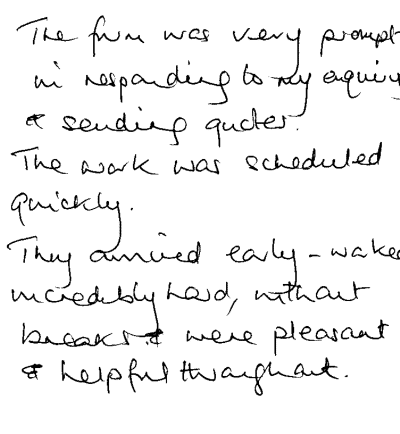 The firm was very prompt
in responding to my enquiry
& sending quotes.
The work was scheduled
quickly.
They arrived early - worked
incredibly hard, without
breaks & were pleasant
& helpful throughout.